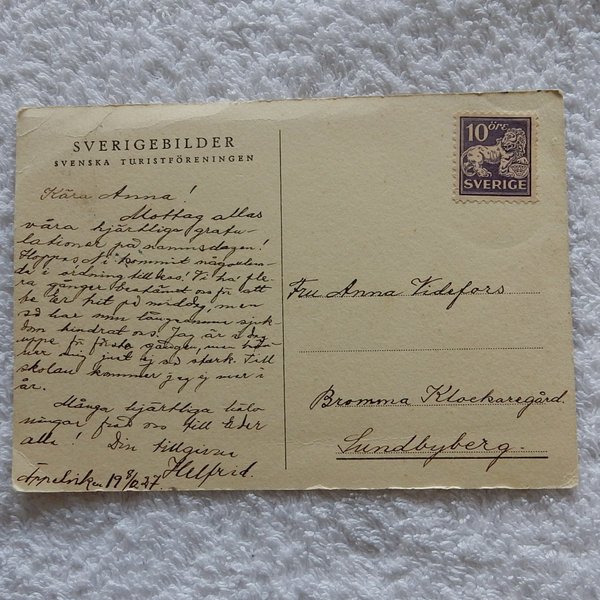 SVERIGEBILDER
SVENSKA TURISTFÖRENINGEN
10 ÖRE
SVERIGE
Kära Anna!
Mottag allas
våra hjärtliga gratu-
lationer på namnsdagen!
Hoppas Ni kommit någorlun-
da i ordning till hos! Vi ha' fle-
ra gånger bestämt oss för att
be Er hit på middag, men
så har min långsamma sjuk-
dom hindrat oss. Jag är i dag
uppe för första gången, men
mig just ej så stark. Till
skolan kommer jag ej mer i
år.
Många hjärtliga häls-
ningar från oss till Eder
alla! Din tillgivna
Helfrid.
Äppelviken 19 9/12 27.
Fru Anna Videfors
Bromma Klockaregård.
Sundbyberg.